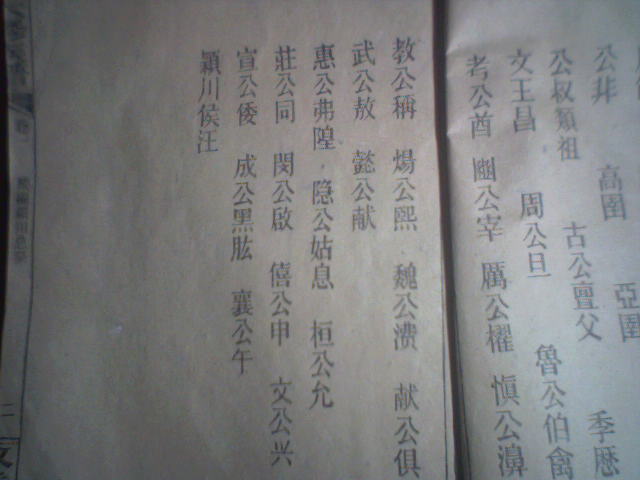 公非 高圉 亞圉 季歷
公叔類祖 古公亶父
文王昌 周公旦 魯公伯禽
考公酋 幽公宰 厲公櫂 慎公濞
教公稱 煬公熙 魏公沸 献公俱
武公敖 懿公献
惠公弗隍 隐公姑息 桓公允
莊公同 閔公啟 僖公申 文公兴
宣公倭 成公黑肱 襄公午
潁川侯汪